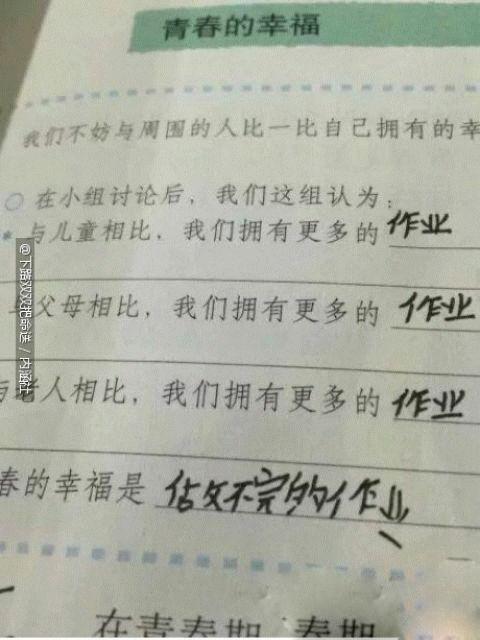 青春的幸福
我们不妨与周围的人比一比自己拥有的幸
○ 在小组讨论后，我们这组认为：
* 与儿童相比，我们拥有更多的 作业
与父母相比，我们拥有更多的 作业
与老人相比，我们拥有更多的 作业
春的幸福是 估文不完的作业
在青春期 春期